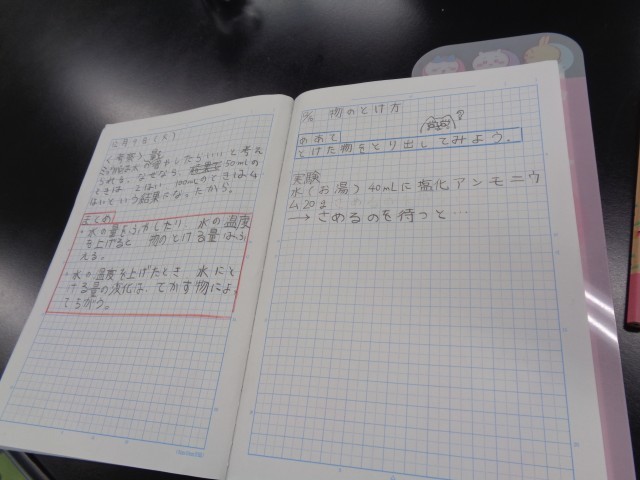 12月9日(火)
(考察)
水の量を増やしたらいいと考え
られる。なぜなら、50mLの
ときは2はい 100mLのときは4
はいという結果になったから。
まとめ
・水の量をふやしたり 水の温度
を上げると 物のとける量はふ
える。
・水の温度を上げたとき 水にと
ける量の変化は、とかす物によっ
てちがう。
物のとけ方
めあて
とけた物をとり出してみよう。
実験
水(お湯)40mLに塩化アンモニウ
ム20g
→さめるのを待つと…